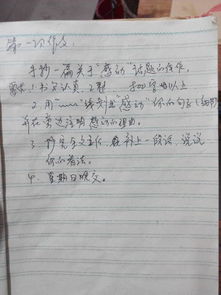 第一次作文:
手抄一篇关于"感动"话题的佳作,
要求:1.书写认真,2割 500字以上
2.用"﹏﹏"线划出"感动"你的句子(细节)
并在旁边注明感动的理由。
3.抄完全文之后,在补上一段话,说说
你的看法。
4.星期日晚交。